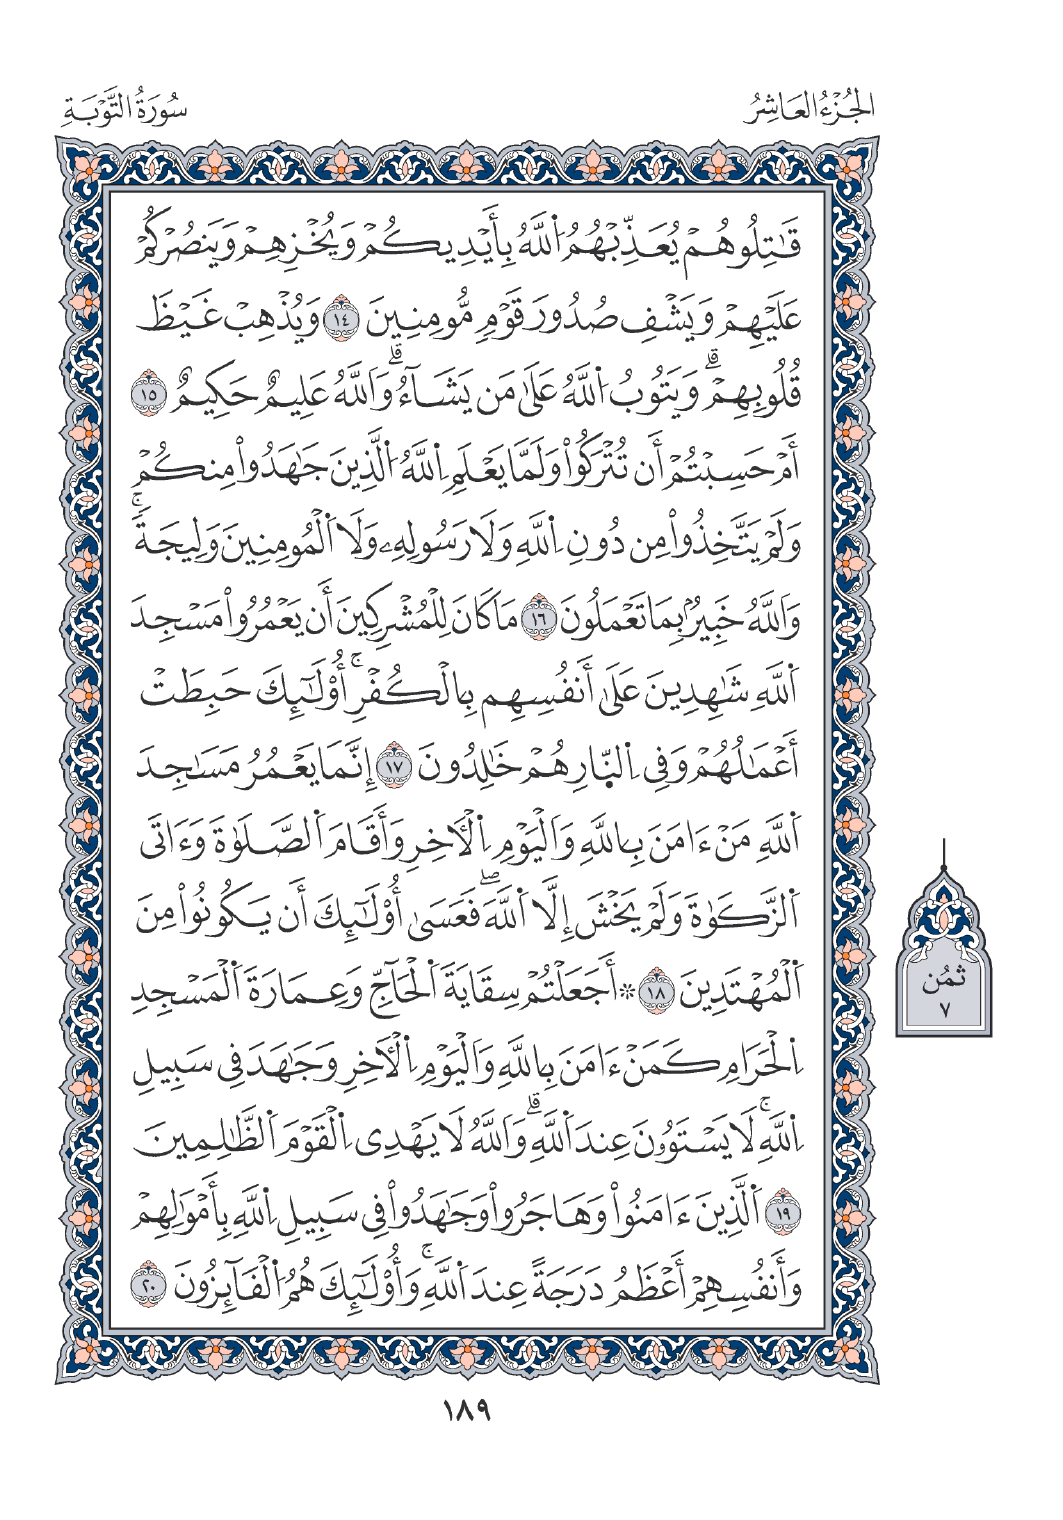 الجُزْءُ العَاشِرُ
سُورَةُ التَّوْبَةِ
قَٰتِلُوهُمْ يُعَذِّبْهُمُ اُ۬للَّهُ بِأَيْدِيكُمْ وَيُخْزِهِمْ وَيَنصُرْكُمْ
عَلَيْهِمْ وَيَشْفِ صُدُورَ قَوْمٖ مُّومِنِينَ ١٤ وَيُذْهِبْ غَيْظَ
قُلُوبِهِمْۗ وَيَتُوبُ اُ۬للَّهُ عَلَىٰ مَن يَشَآءُۗ وَاَللَّهُ عَلِيمٌ حَكِيمٌ ١٥
أَمْ حَسِبْتُمْ أَن تُتْرَكُواْ وَلَمَّا يَعْلَمِ اِ۬للَّهُ اُ۬لَّذِينَ جَٰهَدُواْ مِنكُمْ
وَلَمْ يَتَّخِذُواْ مِن دُونِ اِ۬للَّهِ وَلَا رَسُولِهِۦ وَلَا اَ۬لْمُومِنِينَ وَلِيجَةٗۚ
وَاَللَّهُ خَبِيرُۢ بِمَا تَعْمَلُونَ ١٦ مَا كَانَ لِلْمُشْرِكِينَ أَن يَعْمُرُواْ مَسْجِدَ
اَ۬للَّهِ شَٰهِدِينَ عَلَىٰ أَنفُسِهِم بِالْكُفْرِۚ أُوْلَٰٓئِكَ حَبِطَتْ
أَعْمَٰلُهُمْ وَفِي اِ۬لنّ۪ارِ هُمْ خَٰلِدُونَ ١٧ إِنَّمَا يَعْمُرُ مَسَٰجِدَ
اَ۬للَّهِ مَنْ ءَامَنَ بِاللَّهِ وَاَلْيَوْمِ اِ۬لْأٓخِرِ وَأَقَامَ اَ۬لصَّلَوٰةَ وَءَاتَى
اَ۬لزَّكَوٰةَ وَلَمْ يَخْشَ إِلَّا اَ۬للَّهَۖ فَعَسَىٰ أُوْلَٰٓئِكَ أَن يَكُونُواْ مِنَ
اَ۬لْمُهْتَدِينَ ١٨ ۞أَجَعَلْتُمْ سِقَايَةَ اَ۬لْحَآجِّ وَعِمَارَةَ اَ۬لْمَسْجِدِ
اِ۬لْحَرَامِ كَمَنْ ءَامَنَ بِاللَّهِ وَاَلْيَوْمِ اِ۬لْأٓخِرِ وَجَٰهَدَ فِي سَبِيلِ
اِ۬للَّهِۚ لَا يَسْتَوُۥنَ عِندَ اَ۬للَّهِۗ وَاَللَّهُ لَا يَهْدِي اِ۬لْقَوْمَ اَ۬لظَّٰلِمِينَ
١٩ اَ۬لَّذِينَ ءَامَنُواْ وَهَاجَرُواْ وَجَٰهَدُواْ فِي سَبِيلِ اِ۬للَّهِ بِأَمْوَٰلِهِمْ
وَأَنفُسِهِمْ أَعْظَمُ دَرَجَةً عِندَ اَ۬للَّهِۚ وَأُوْلَٰٓئِكَ هُمُ اُ۬لْفَآئِزُونَ ٢٠
ثمُن
٧
١٨٩